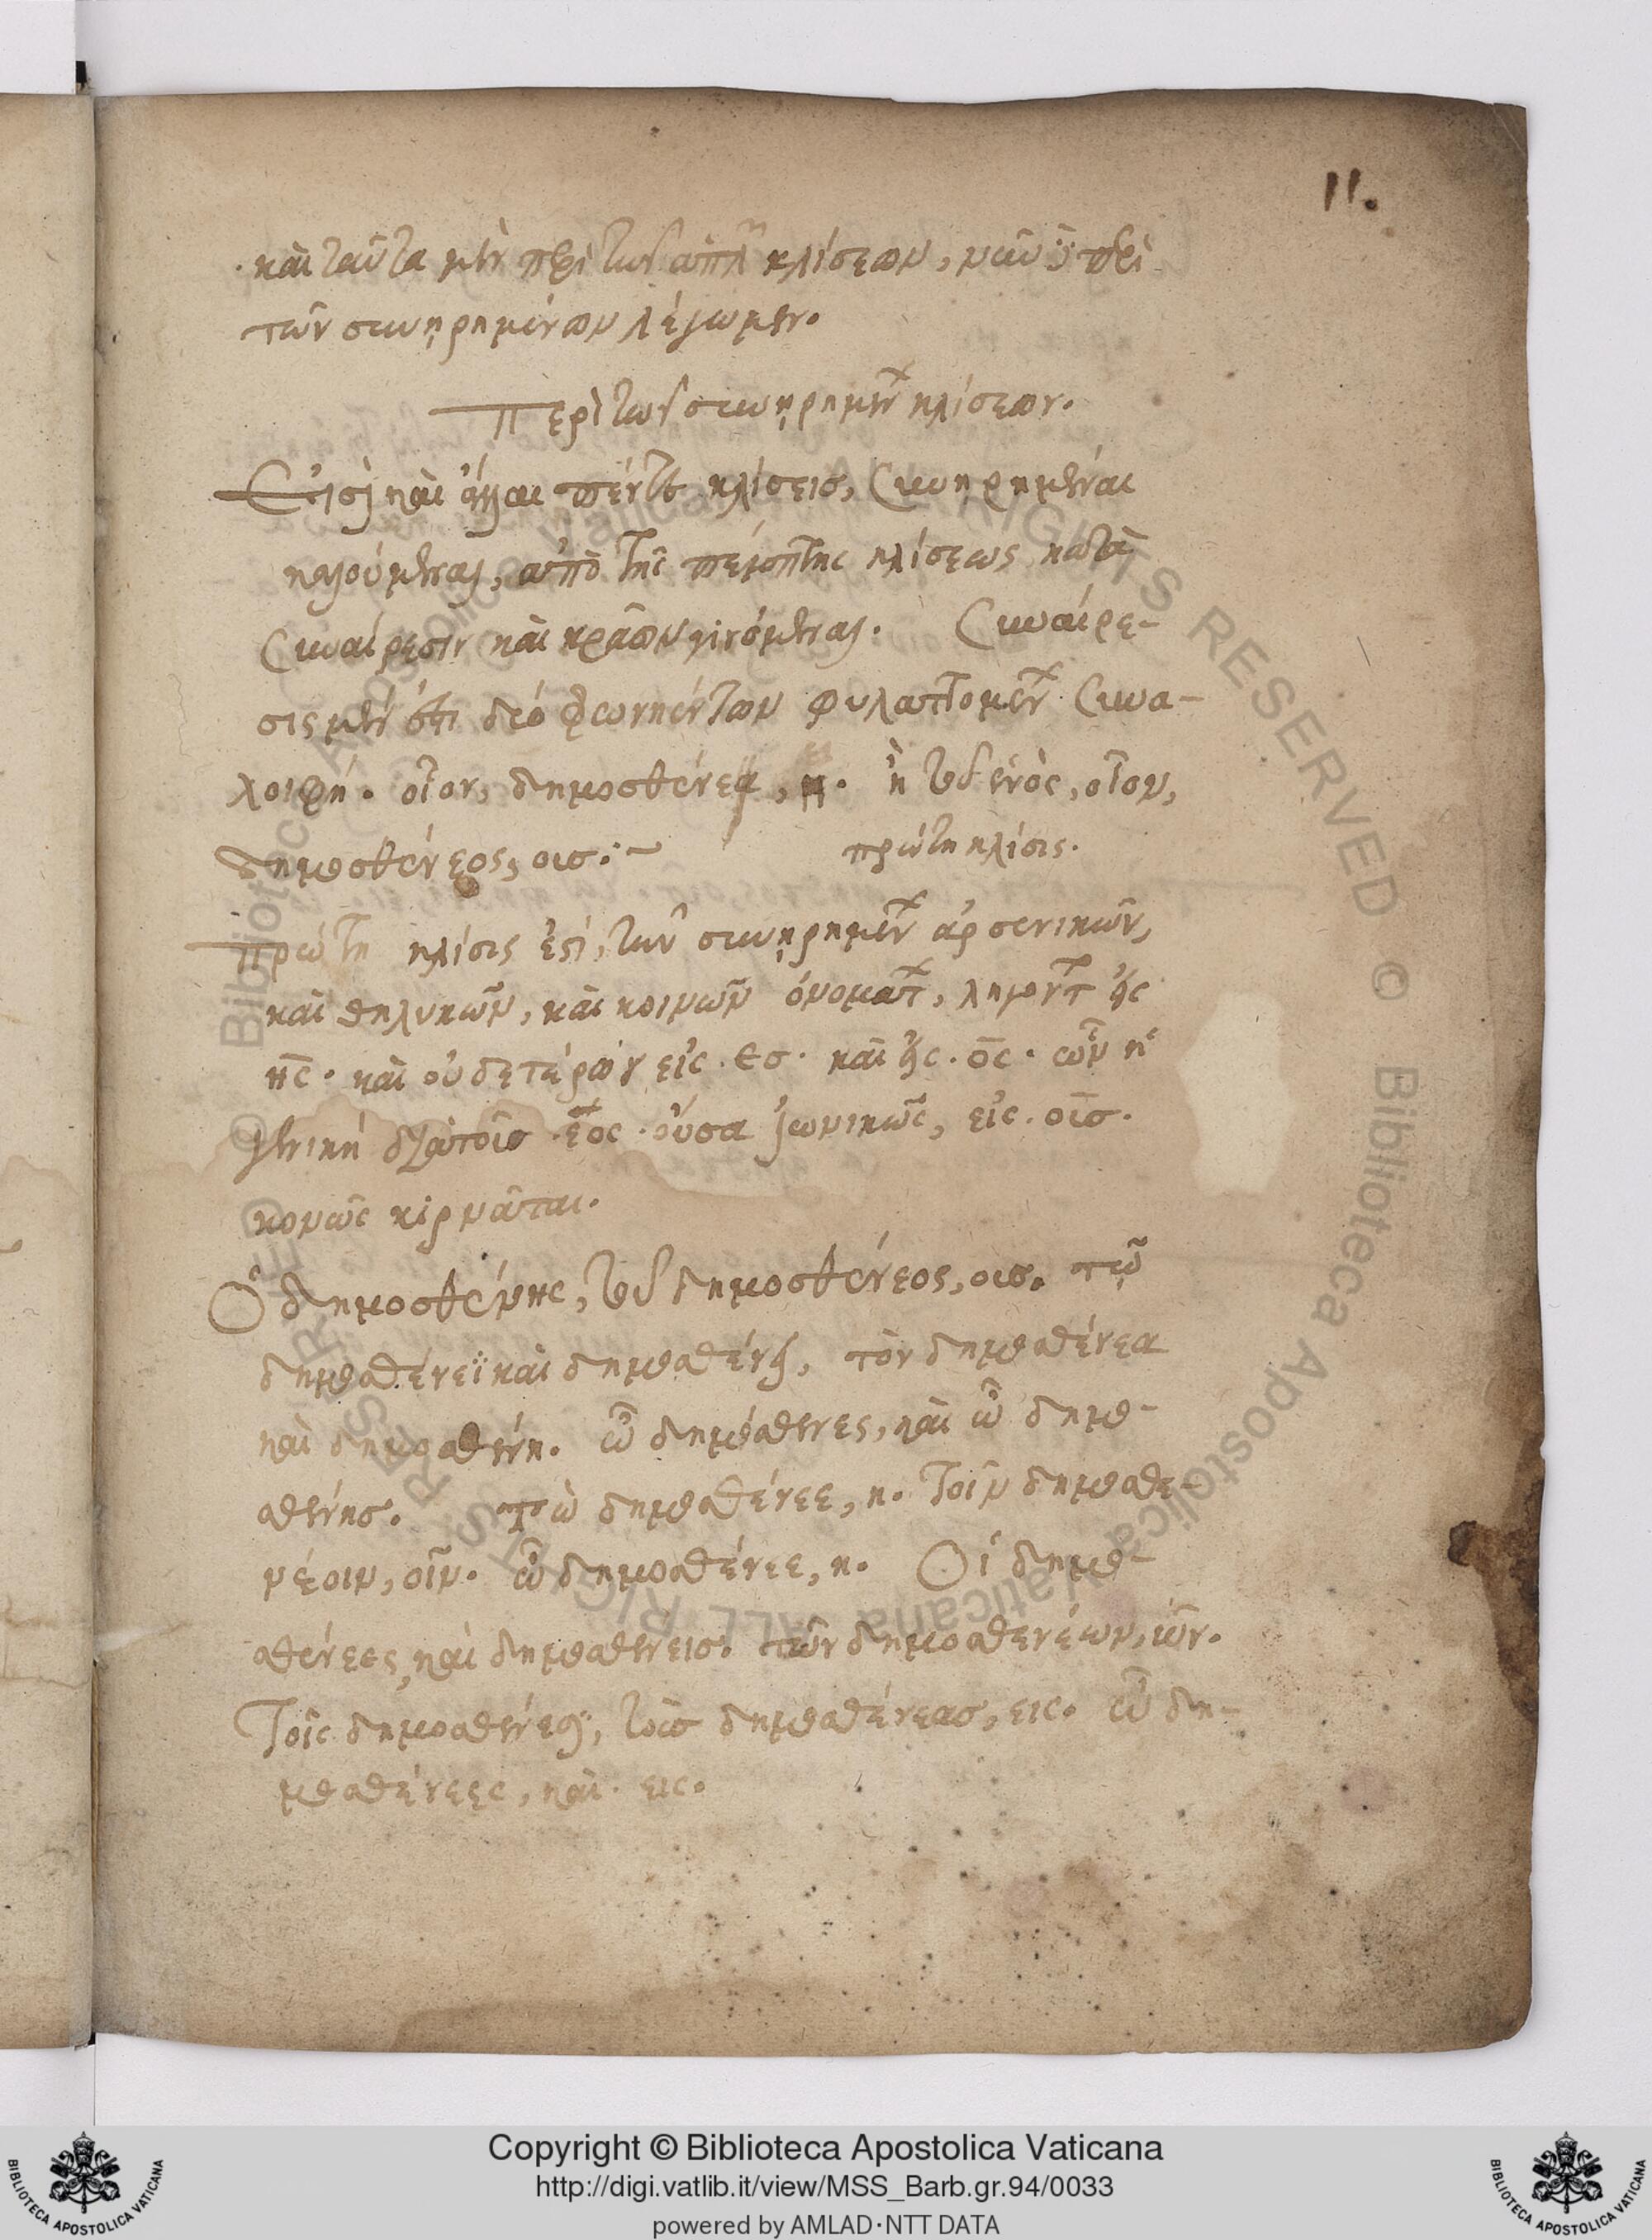 11.
καὶ ταῦτα μὲν περὶ τῶν ἁπλῶν κλίσεων, νῦν δὲ περὶ
τῶν συνῃρημένων λέγωμεν.
Περὶ τῶν συνῃρημένων κλίσεων.
Εἰσὶ καὶ ἄλλαι πέντε κλίσεις, συνῃρημέναι
καλούμεναι, ἀπὸ τῆς πέμπτης κλίσεως κατὰ
συναίρεσιν καὶ κρᾶσιν γινόμεναι. Συναίρε-
σις μέν ἐστι δύο φωνηέντων φυλαττομένων συνα-
λοιφή. οἷον, δημοσθένεα, η. ἢ τοῦ ἑνὸς, οἷον,
δημοσθένεος, ους:~ πρώτη κλίσις.
Πρώτη κλίσις ἐστί, τῶν συνῃρημένων ἀρσενικῶν,
καὶ θηλυκῶν, καὶ κοινῶν ὀνομάτων, ληγόντων εἰς
ης. καὶ οὐδετέρων εἰς. ες. καὶ εἰς. ος. ὧν ἡ
γενικὴ διὰ τοῦ εος. οὖσα ἰωνικῶς, εἰς. ους.
κοινῶς κιρνᾶται.
Ὁ δημοσθένης, τοῦ δημοσθένεος, ους. τῷ
δημοσθένεϊ καὶ δημοσθένει, τὸν δημοσθένεα
καὶ δημοσθένη. ὦ δημόσθενες, καὶ ὦ δημο-
σθένης. τὼ δημοσθένεε, η. τοῖν δημοσθε-
νέοιν, οῖν. ὦ δημοσθένεε, η. Οἱ δημο-
σθένεες, καὶ δημοσθένεις. τῶν δημοσθενέων, ῶν.
Τοῖς δημοσθένεσι, τοὺς δημοσθένεας, εις. ὦ δη-
μοσθένεες, καὶ. εις.
Copyright © Biblioteca Apostolica Vaticana
http://digi.vatlib.it/view/MSS_Barb.gr.94/0033
powered by AMLAD·NTT DATA
BIBLIOTECA APOSTOLICA VATICANA
BIBLIOTECA APOSTOLICA VATICANA